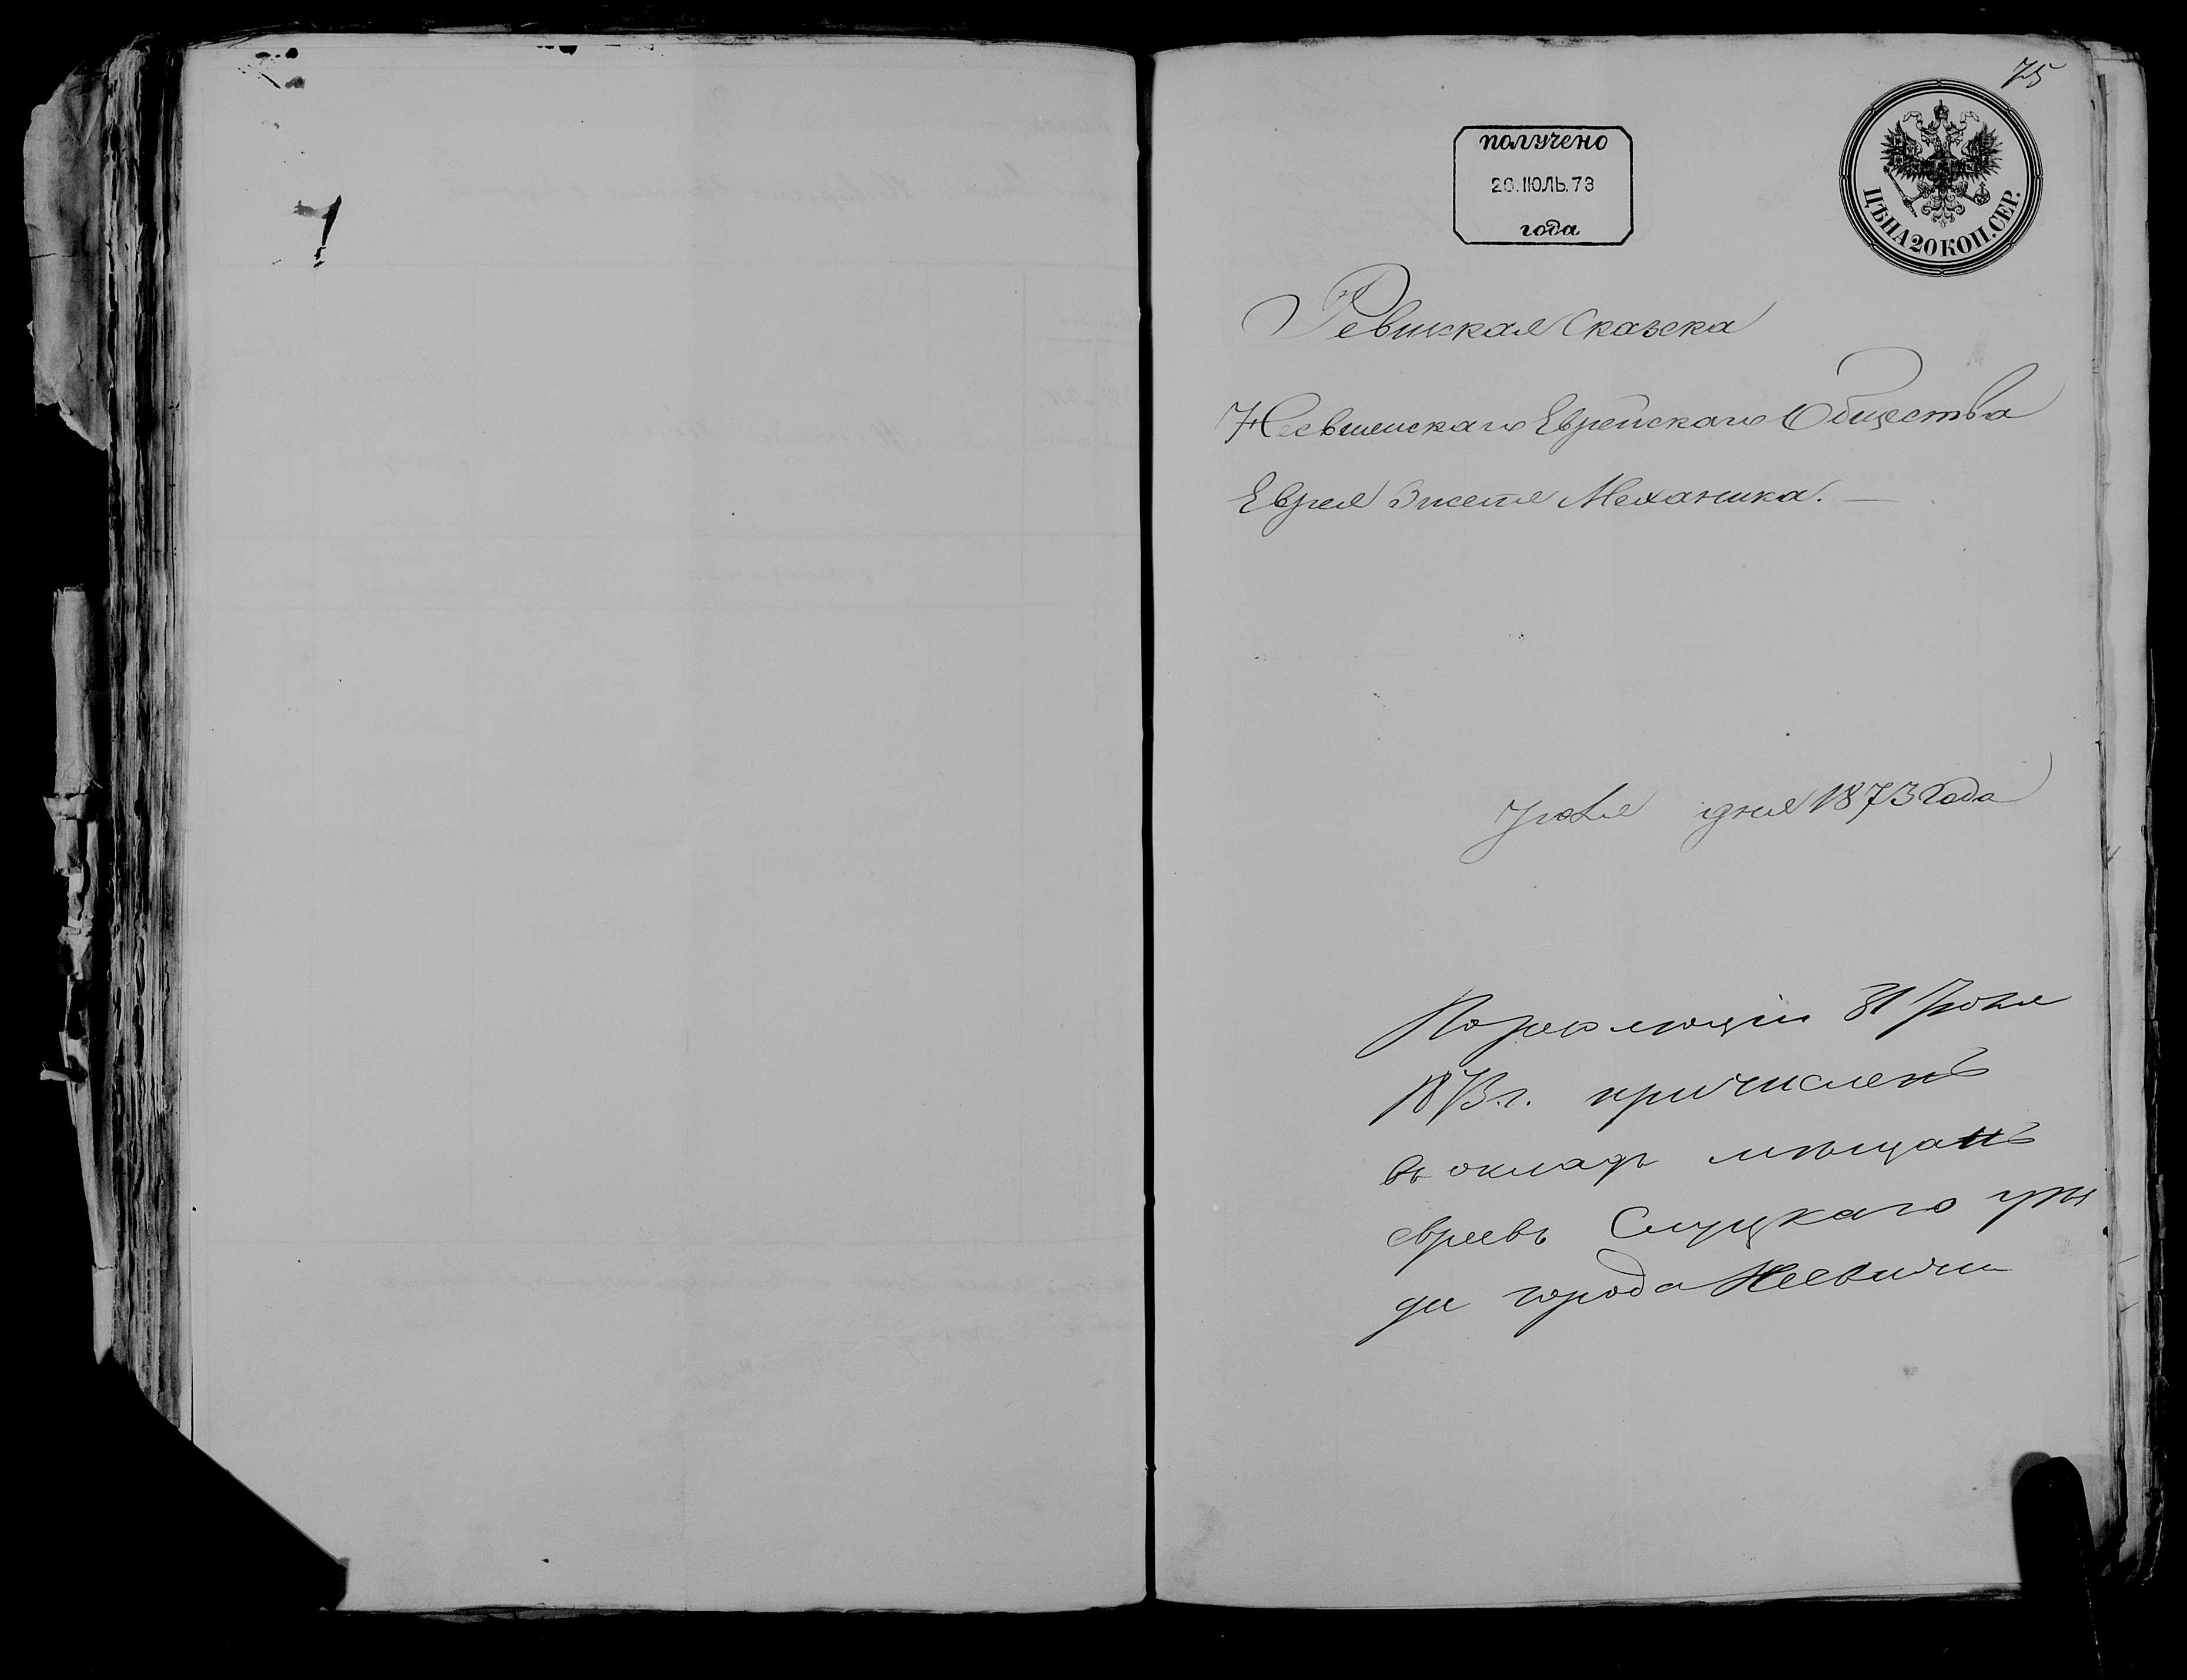 75
получено
20.ІЮЛЬ.73
года
ЦѢНА 20 КОП. СЕР.
Ревизская Сказска
Несвижскаго Еврейскаго Общества
Еврея Механика.
Іюля дня 1873 Года
По резолюціи 31 Іюля
1873 г. причисленъ
въ окладъ мѣщанъ
евреевъ Слуцкаго уѣз
да города Несвижа